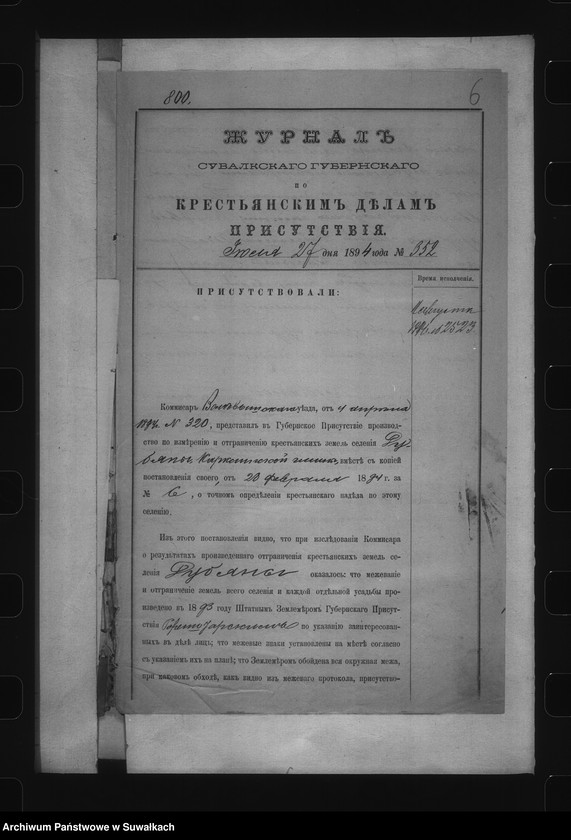 800.
6
ЖУРНАЛЪ
СУВАЛКСКАГО ГУБЕРНСКАГО
ПО
КРЕСТЬЯНСКИМЪ ДѢЛАМЪ
ПРИСУТСТВІЯ.
Іюля 27 дня 1894 года № 352
Время исполненія.
ПРИСУТСТВОВАЛИ:
Августа
2523
Комисаръ уѣзда, отъ 4 апрѣля
1894 N 320, представилъ въ Губернское Присутствіе производ-
ство по измѣренію и отграниченію крестьянскихъ земель селенія Ду-
бяны, гмины, вмѣстѣ съ копіей
постановленія своего, отъ 20 февраля 1894 г. за
№ 6, о точномъ опредѣленіи крестьянскаго надѣла по этому
селенію.
Изъ этого постановленія видно, что при изслѣдованіи Комисара
о результатахъ произведеннаго отграниченія крестьянскихъ земель се-
ленія Дубяны оказалось: что межеваніе
и отграниченіе земель всего селенія и каждой отдѣльной усадьбы про-
изведено въ 1893 году Штатнымъ Землемѣромъ Губернскаго Присут-
ствія по указанію заинтересован-
ныхъ въ дѣлѣ лицъ; что межевые знаки установлены на мѣстѣ согласно
съ указаніемъ ихъ на планѣ; что Землемѣромъ обойдена вся окружная межа,
при каковомъ обходѣ, какъ видно изъ межеваго протокола, присутство-
Archiwum Państwowe w Suwałkach